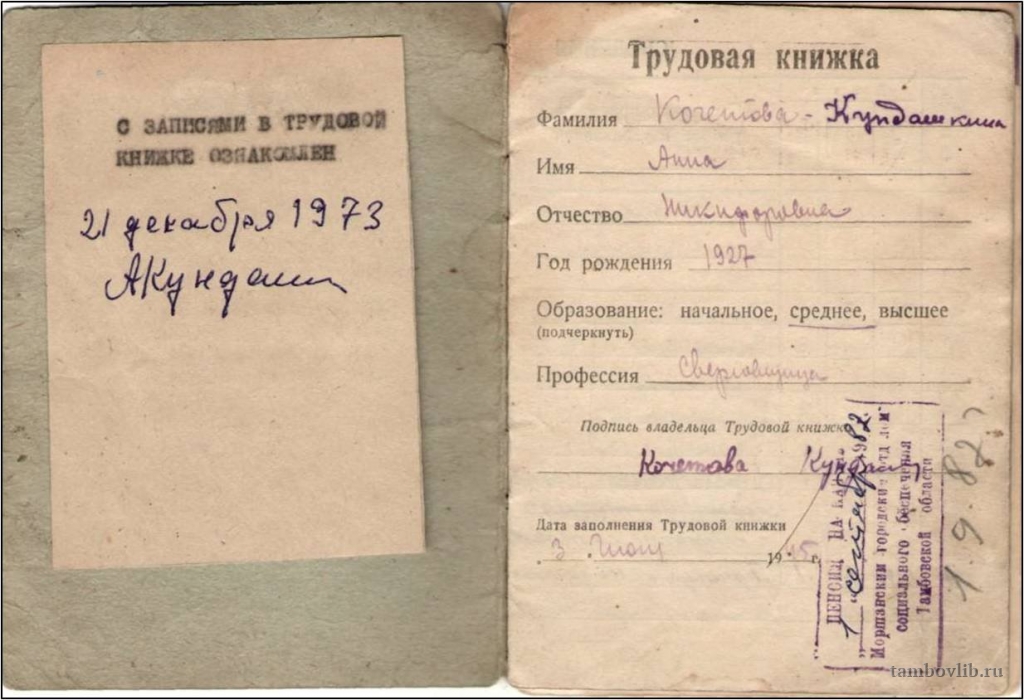 С ЗАПИСЯМИ В ТРУДОВОЙ
КНИЖКЕ ОЗНАКОМЛЕН
21 декабря 1973
АКундаш
Трудовая книжка
Фамилия Кочетова - Кундашкина
Имя Анна
Отчество Никифоровна
Год рождения 1927
Образование: начальное, среднее, высшее
(подчеркнуть)
Профессия Сверловщица
Подпись владельца Трудовой книжки
Кочетова Кундаш
Дата заполнения Трудовой книжки
3 1945 г.
ПЕНСИЯ НА
„1" сентября 1982
Моршанским городским отделом
социального обеспечения
Тамбовской области
1.9.82
tambovlib.ru